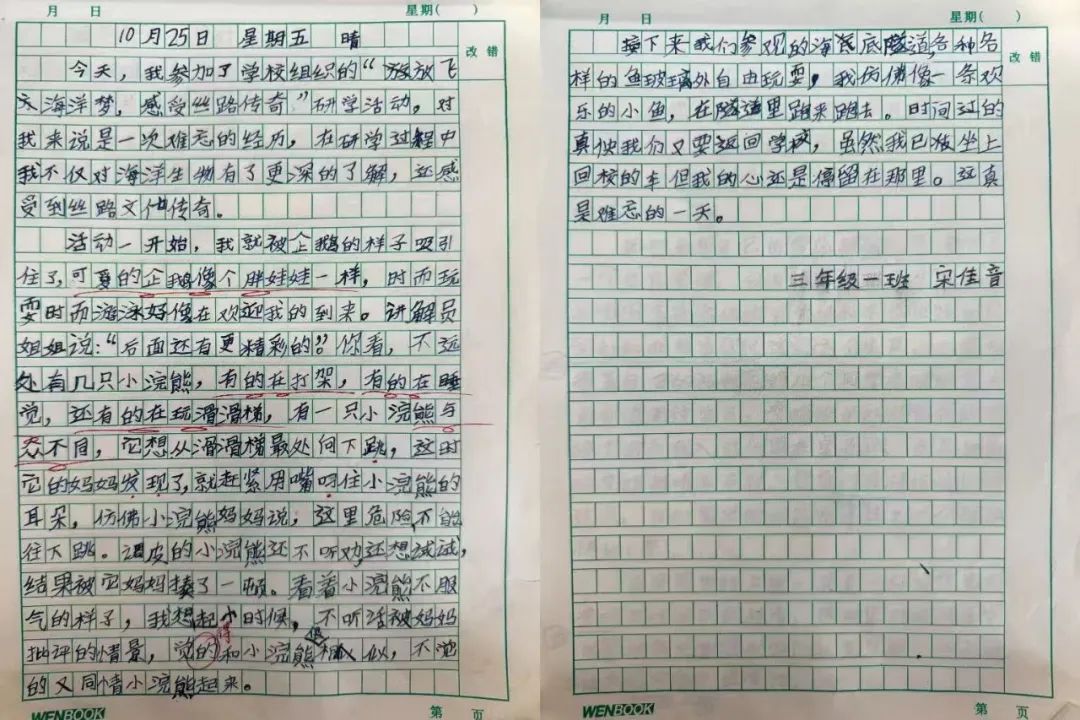 月 日 星期( )
10月25日 星期五 晴
改错
今天，我参加了学校组织的“放飞
海洋梦，感受丝路传奇”研学活动。对
我来说是一次难忘的经历，在研学过程中
我不仅对海洋生物有了更深的了解，还感
受到丝路文化传奇。
活动一开始，我就被企鹅的样子吸引
住了，可爱的企鹅像个胖娃娃一样，时而玩
耍时而游泳好像在欢迎我的到来。讲解员
姐姐说：“后面还有更精彩的”。你看，不远
处有几只小浣熊，有的在打架，有的在睡
觉，还有的在玩滑滑梯，有一只小浣熊与
众不同，它想从滑滑梯最处向下跳，这时
它的妈妈发现了，就赶紧用嘴叼住小浣熊的
耳朵，仿佛小浣熊妈妈说；这里危险，不能
往下跳。调皮的小浣熊还不听劝还想试试，
结果被它妈妈揍了一顿。看着小浣熊不服
气的样子，我想起小时候，不听话被妈妈
得
很
批评的情景，觉的和小浣熊相似，不觉
的又同情小浣熊起来。
WENBOOK
第 页
月 日 星期( )
改错
接下来我们参观的海底隧道各种各
样的鱼玻璃外自由玩耍，我仿佛像一条欢
乐的小鱼，在隧道里跑来跑去。时间过的
真快我们又要返回学校，虽然我已被坐上
回校的车但我的心还是停留在那里。这真
是难忘的一天。
三年级一班 宋佳音
WENBOOK
第 页